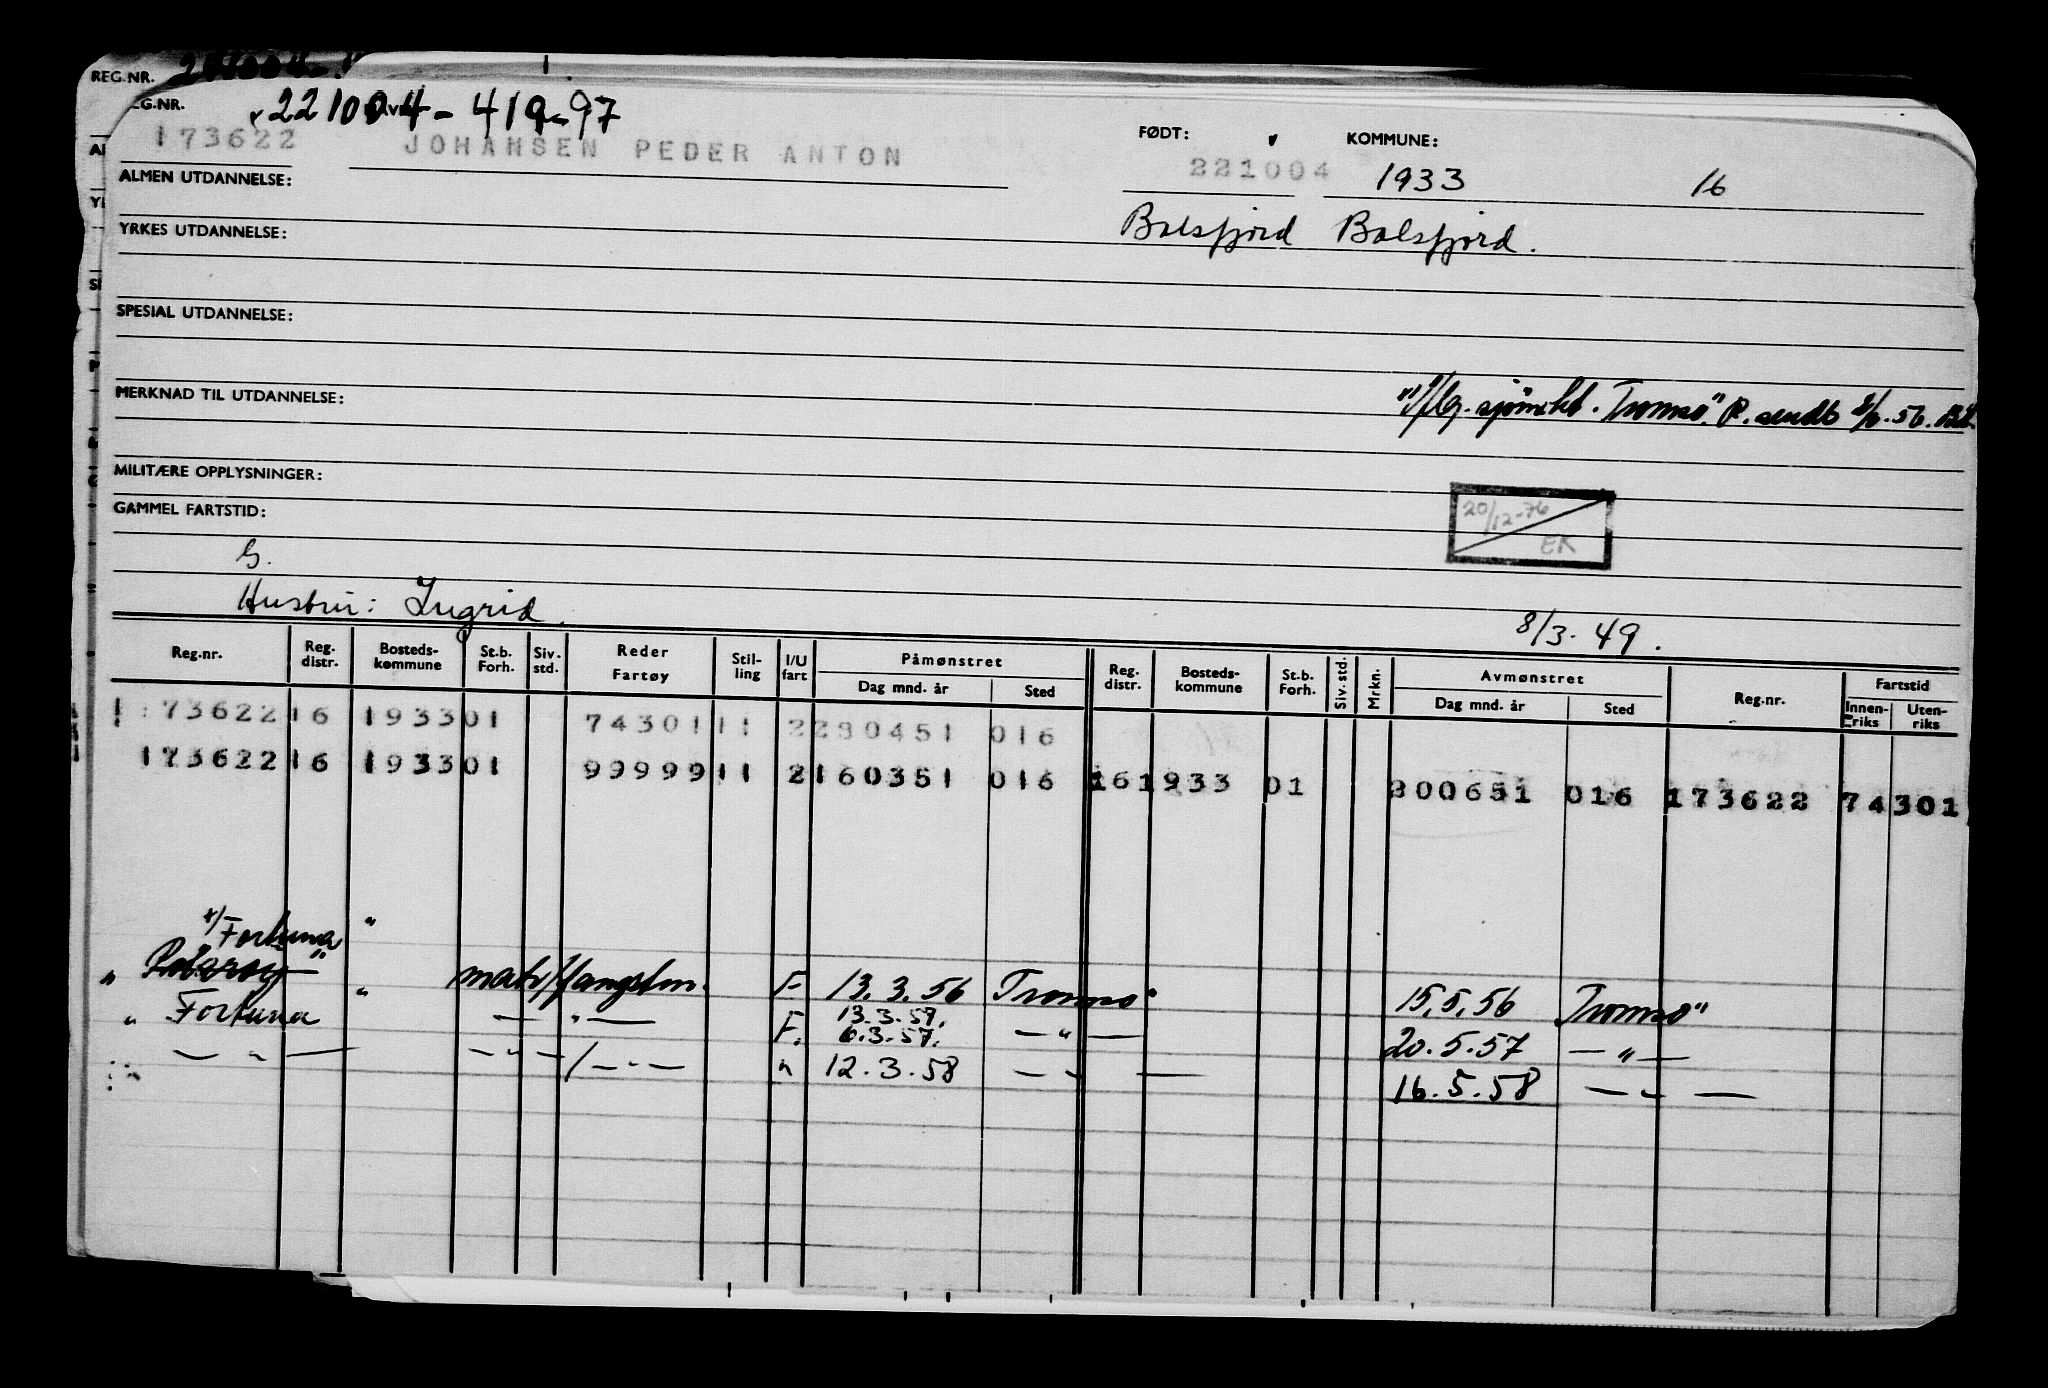 REG.NR.
221004-419-97
173622 JOHANSEN PEDER ANTON
FØDT: KOMMUNE:
221004 1933 16
ALMEN UTDANNELSE:
Balsfjord Balsfjord.
YRKES UTDANNELSE:
SPESIAL UTDANNELSE:
MERKNAD TIL UTDANNELSE:
Tromsø" sendt 56.
MILITÆRE OPPLYSNINGER:
GAMMEL FARTSTID:
20/12-76
EK
G.
Hustru: Ingrid.
8/3-49.
Reg.nr. Reg. distr. Bosteds-kommune St.b. Forh. Siv. std. Reder Fartøy Stil-ling I/U fart Påmønstret Dag mnd. år Sted Reg. distr. Bosteds-kommune St.b. Forh. Siv. std. Mrkn. Avmønstret Dag mnd. år Sted Reg.nr. Fartstid Innen-riks Uten-riks
173622 16 1933 01 74301 11 2 280451 016
173622 16 1933 01 99999 11 2 160351 016 16 1933 01 300651 016 173622 74301
x/ Fortuna "
" " matr/fangstm. F 13.3.56 Tromsø 15.5.56 Tromsø"
" Fortuna — " — F. 13.3.57. 6.3.57. — " — 20.5.57 — " —
— " — — " — / — " — " 12.3.58 — " — 16.5.58 — " —